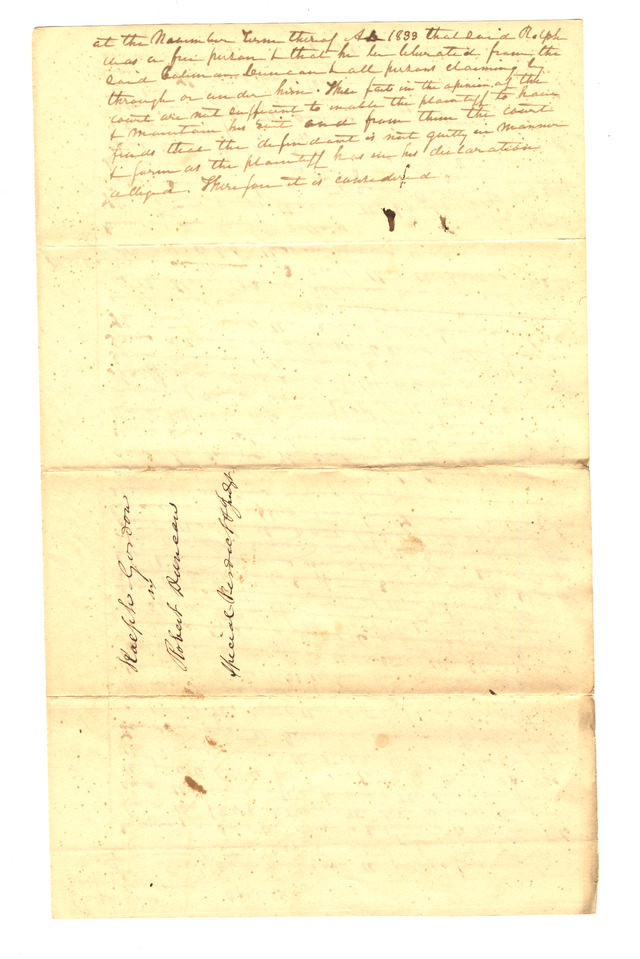 at the November Term thereof AD 1833 that said Ralph
was a free person & that he be liberated from the
said Coleman Duncan & all persons claiming by
through or under him. These facts in the opinion of the
court are not sufficient to enable the plaintiff to have
& maintain his suit and from them the court
finds that the defendant is not guilty in manner
& form as the plaintiff has in his declaration
alleged. Therefore it is considered
Ralph Gordon
vs
Robert Duncan
Special Verdict &